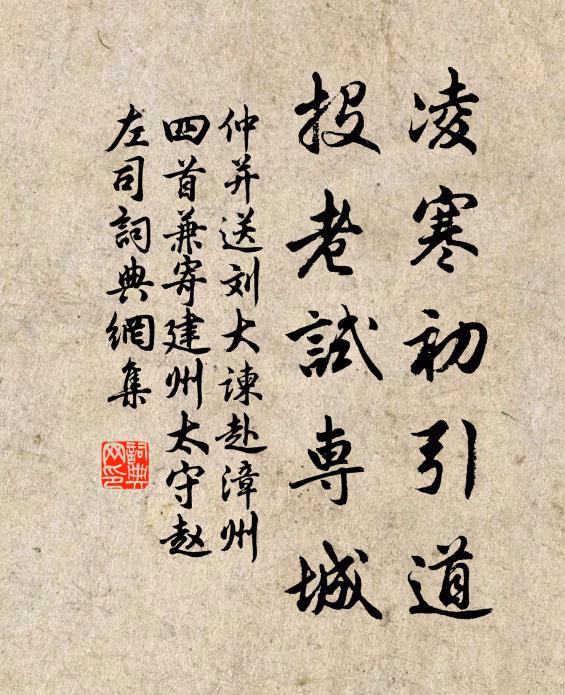 凌寒初引道
投老試専城
仲并送刘大諫赴漳州
四首兼寄建州太守赵
左司詞典網集
詞典网印